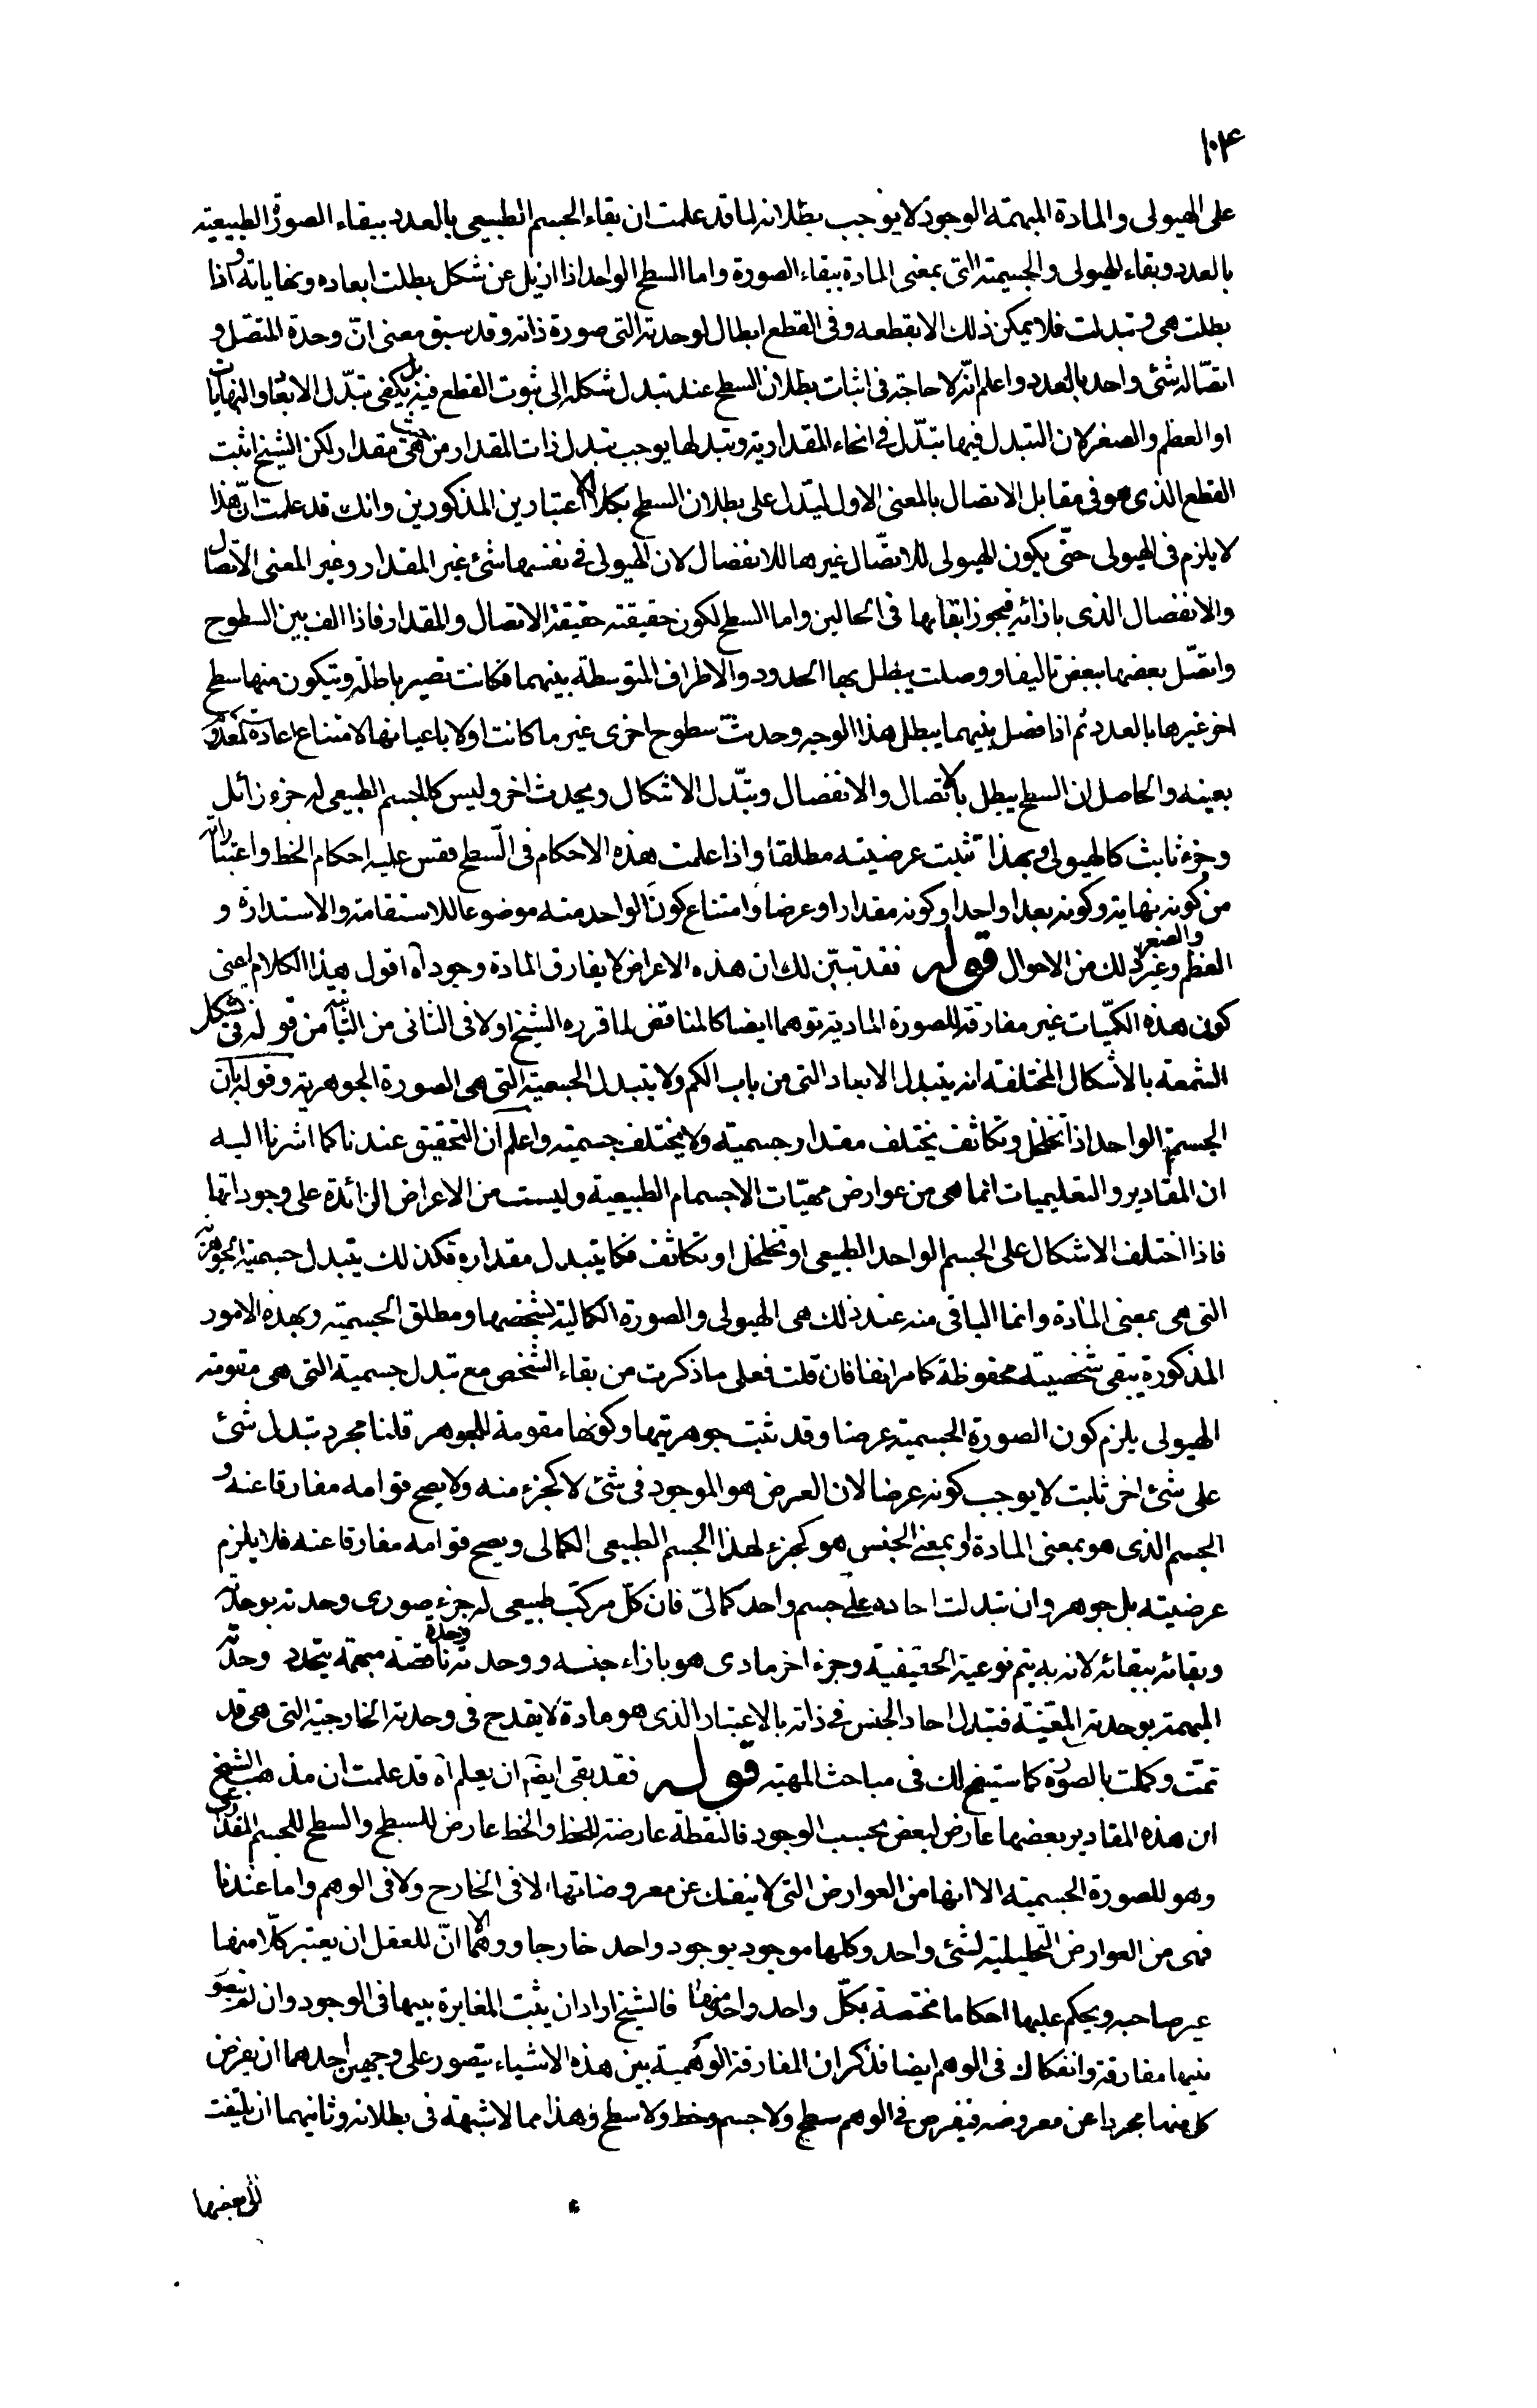 ١٠٤
على الهيولى والمادة المبهمة الوجود لا يوجب بطلانه لما قد علمت ان بقاء الجسم الطبيعى بالعدد ببقاء الصورة الطبيعية
بالعدد وبقاء الهيولى والجسمية التى بمعنى المادة ببقاء الصورة واما السطح الواحد اذا ازيل عن شكل بطلت ابعاده ونهاياته واذا
بطلت هى وتبدلت فلا يمكن ذلك الا بقطعه وفى القطع ابطال لوحدته التى صورة ذاته وقد سبق معنى انّ وحدة المتصّل و
اتصّاله شئ واحد بالعدد واعلم انّه لا حاجة فى اثبات بطلان السطح عند تبدل شكله الى ثبوت القطع فيه بل يكفى تبّدل الابعاد والنهايات
او العظم والصغر لان التبدل فيها تبّدل فى انحاء المقدارية وتبدلها يوجب تبدل ذات المقدار من حيث هى مقدار لكن الشيخ اثبت
القطع الذى هو فى مقابل الاتصال بالمعنى الاول ليتدل على بطلان السطح بكلا الاعتبارين المذكورين وانك قد علمت انّ هذا
لا يلزم فى الهيولى حتّى يكون الهيولى للاتصّال غيرها للانفصال لان الهيولى فى نفسها شئ غير المقدار وغير المعنى الاتصال
والانفصال الذى بازائه فيجوز ابقائها فى الحالين واما السطح لكون حقيقته حقيقة الاتصال والمقدار فاذا الف بين السطوح
واتصّل بعضها ببعض تاليفا ووصلت يبطل بها الحدود والاطراف المتوسطة بينهما فكانت تصير باطلة ويتكون منها سطح
اخر غيرها بالعدد ثم اذا فصل بينهما يبطل هذا الوجه وحدث سطوح اخرى غير ما كانت اولا باعيانها لامتناع اعادة المعدوم
بعينه والحاصل ان السطح يبطل بالاتصال والانفصال وبتّدل الاشكال ويحدث اخر وليس كالجسم الطبيعى له جزء زائل
وجزء ثابت كالهيولى وبهذا تثبت عرضيته مطلقا واذا علمت هذه الاحكام فى السّطح فقس عليه احكام الخط واعتباراته
من كونه نهاية وكونه بعدا واحدا وكونه مقدارا وعرضا وامتناع كون الواحد منه موضوعا للاستقامة والاستدارة و
العظم والصغر وغير ذلك من الاحوال قوله فقد تبيّن لك ان هذه الاعراض لا يفارق المادة وجودا اه اقول بهذا الكلام اعنى
كون هذه الكميّات غير مفارقة للصورة المادية توهما ايضا كالمناقض لما قرره الشيخ اولا فى الثانى من الثانية من قوله فى تشكل
الشمعة بالاشكال المختلفة انه يتبدل الابعاد التى من باب الكم ولا يتبدل الجسمية التى هى الصورة الجوهرية وقوله بان
الجسم الواحد اذا تخلخل وتكاثف يختلف مقدار جسميته ولا يختلف جسميته واعلم ان التحقيق عندنا كما اشرنا اليه
ان المقادير والتعليميات انما هى من عوارض مهيّات الاجسام الطبيعية وليست من الاعراض الزائدة على وجوداتها
فاذا اختلف الاشكال على الجسم الواحد الطبيعى او تخلخل او تكاثف فكما يتبدل مقداره فكذلك يتبدل جسميته الجوهرية
التى هى بمعنى المادة وانما الباقى منه عند ذلك هى الهيولى والصورة الكمالية بشخصها ومطلق الجسمية وبهذه الامور
المذكورة يبقى شخصيته محفوظة كما مر انفا فان قلت فعلى ما ذكرت من بقاء الشخص مع تبدل جسميته التى هى مقومة
الهيولى يلزم كون الصورة الجسمية عرضا وقد ثبت جوهريتها وكونها مقومة للجوهر قلنا مجرد تبدل شئ
على شئ اخر ثابت لا يوجب كونه عرضا لان العرض هو الموجود فى شئ لا كجزء منه ولا يصح قوامه مفارقا عنه و
الجسم الذى هو بمعنى المادة او بمعنى الجنس هو كجزء لهذا الجسم الطبيعى الكمالى ويصح قوامه مفارقا عنه فلا يلزم
عرضيته بل جوهر وان تبدلت احاده على جسم واحد كمالىّ فان كلّ مركّب طبيعى له جزء صورى وحدته بوحدته
وبقائه ببقائه لانه به يتم نوعيته الحقيقية وجزء اخر مادى هو بازاء جنسه ووحدته وحدة ناقصة مبهمة يتحدد وحدته
المبهمة بوحدته المعّينة فتبدل احاد الجنس فى ذاته بالاعتبار الذى هو مادة لا يقدح فى وحدته الخارجية التى هى قد
تمّت وكملت بالصورة كما ستيضح لك فى مباحث المهية قوله فقد بقى ايضا ان يعلم اه قد علمت ان مذهب الشيخ
ان هذه المقادير بعضها عارض لبعض بحسب الوجود فالنقطة عارضة للخط والخط عارض للسطح والسطح للجسم المقدارى
وهو للصورة الجسمية الا انها من العوارض التى لا ينفك عن معروضاتها لا فى الخارج ولا فى الوهم واما عندنا
فهى من العوارض التحليلية لشئ واحد وكلها موجود بوجود واحد خارجا ووهما الا انّ للعقل ان يعتبر كلّا منها
غير صاحبه ويحكم عليها احكاما مختصة بكلّ واحد واحد منها فالشيخ اراد ان يثبت المغايرة بينها فى الوجود وان لم يتصور
فيها مفارقة وانفكاك فى الوهم ايضا فذكر ان المفارقة الوهمية بين هذه الاشياء يتصور على وجهين احدهما ان يفرض
كل منها مجردا عن معروضه فيفرض فى الوهم سطح ولا جسم وخط ولا سطح وهذا مما لا شبهة فى بطلانه وثانيهما ان يلتفت
الى بعضها